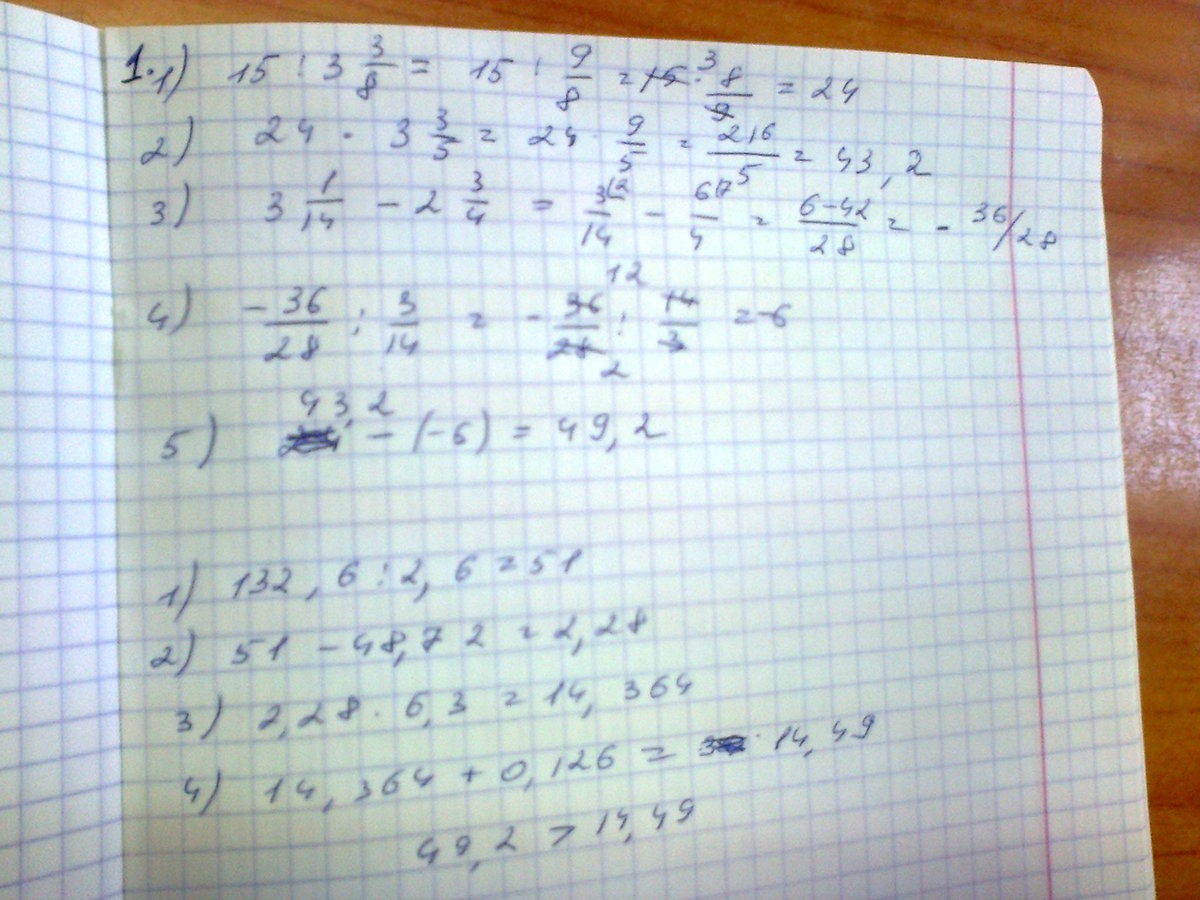 1. 1) 15 : 3 3/8 = 15 : 9/8 = 15 · 3 8/9 = 24
2) 24 · 3 3/5 = 24 · 9/5 = 216/5 = 43,2
3) 3 1/14 - 2 3/4 = 3/14 - 6/4 = 6-42/28 = - 36/28
4) -36/28 : 3/14 = - 36 12/28 2 : 14/3 = -6
5) 43,2 - (-6) = 49,2
1) 132,6 : 2,6 = 51
2) 51 - 48,72 = 2,28
3) 2,28 · 6,3 = 14,364
4) 14,364 + 0,126 = 14,49
49,2 > 14,49